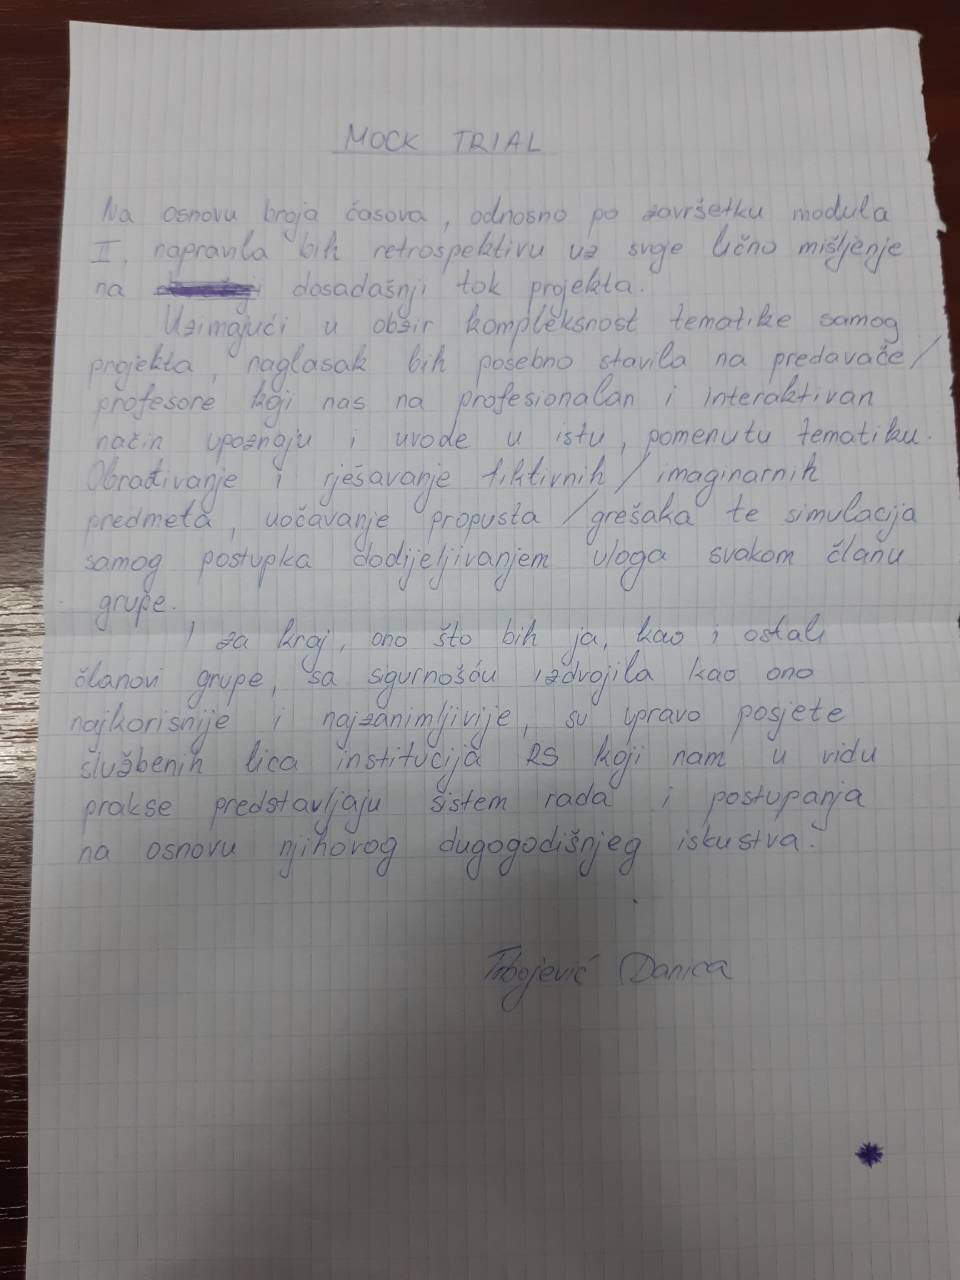 MOCK TRIAL
Na osnovu broja časova, odnosno po završetku modula
II, napravila bih retrospektivu uz svoje lično mišljenje
na dosadašnji tok projekta.
Uzimajući u obzir kompleksnost tematike samog
projekta, naglasak bih posebno stavila na predavače/
profesore koji nas na profesionalan i interaktivan
način upoznaju i uvode u istu, pomenutu tematiku.
Obrađivanje i rješavanje fiktivnih/imaginarnih
predmeta, uočavanje propusta/grešaka te simulacija
samog postupka dodijeljivanjem uloga svakom članu
grupe.
I za kraj, ono što bih ja, kao i ostali
članovi grupe, sa sigurnošću izdvojila kao ono
najkorisnije i najzanimljivije, su upravo posjete
službenih lica institucija RS koji nam u vidu
prakse predstavljaju sistem rada i postupanja
na osnovu njihovog dugogodišnjeg iskustva.
Danica